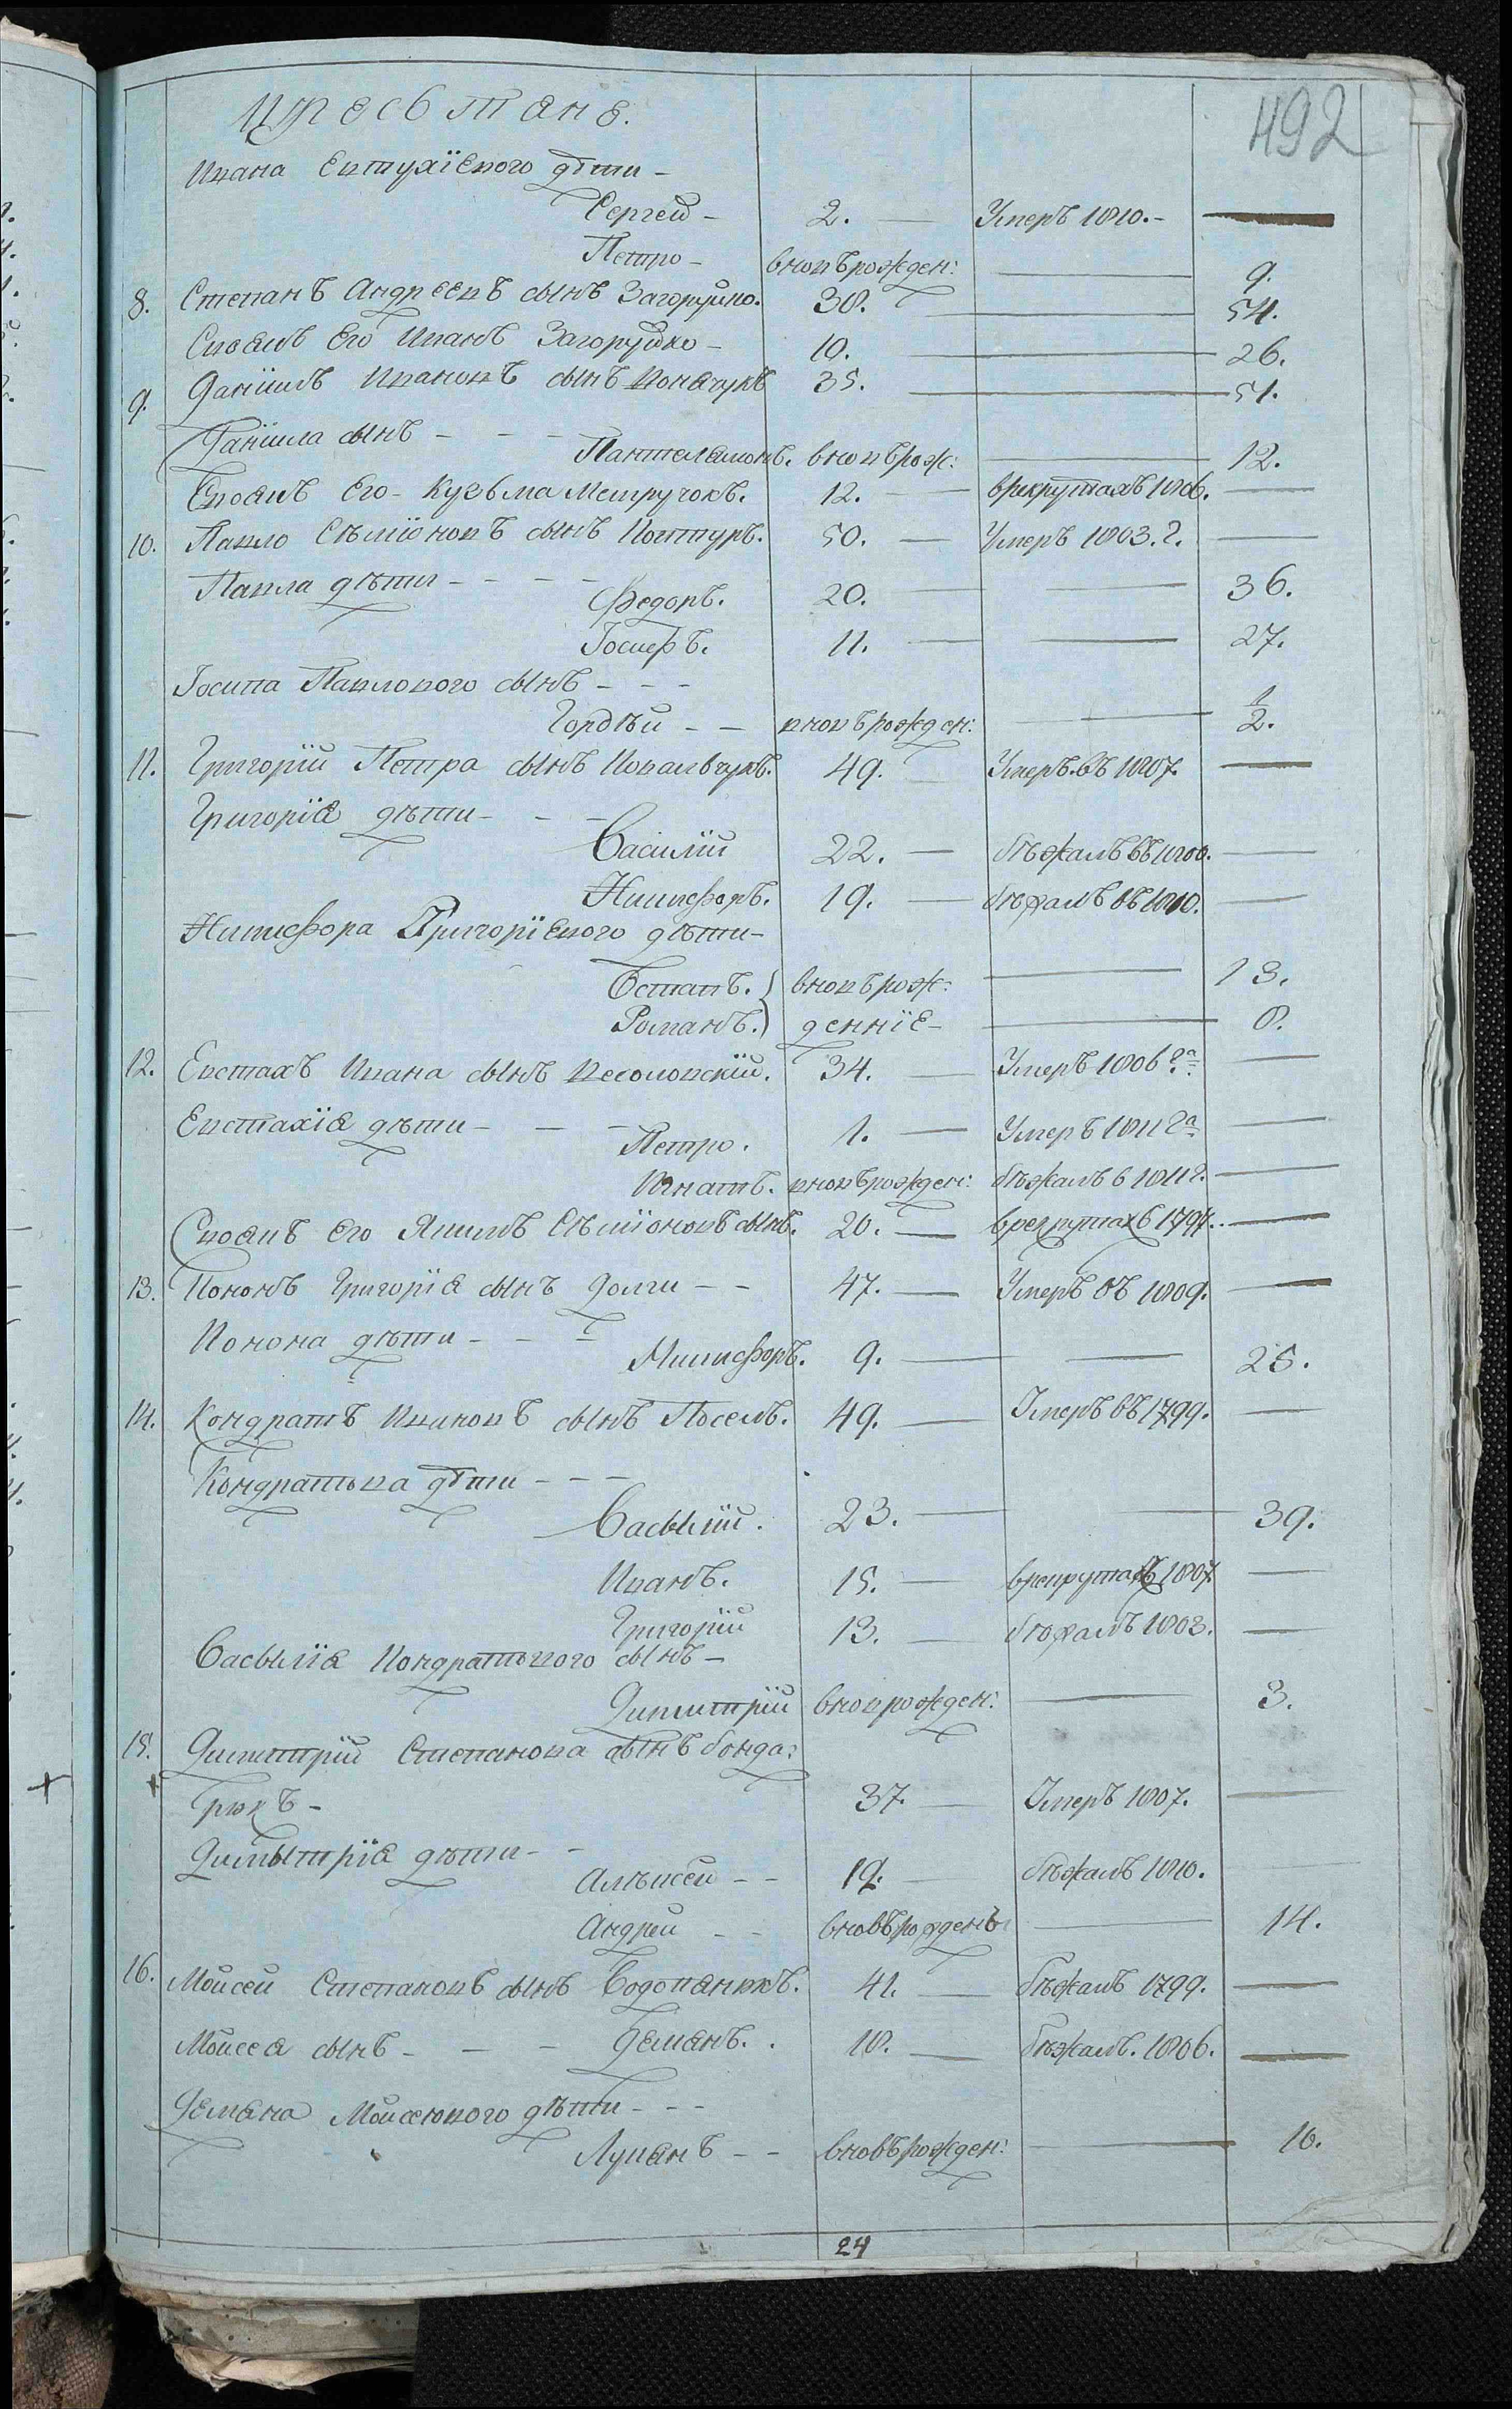 492
Кресьтяне.
Ивана Евтухіевого дѣти -
Сергей - 2. — Умеръ 1810. -
Петро - вновь рожден: — 9.
8. Степанъ Андреевъ сынъ Загоруйко. 38. — 54.
Своякъ Его Иванъ Загоруйко - 10. — 26.
9. Данiилъ Ивановъ сынъ 35. — 51.
Данiила сынъ - - - Пантелемонъ. вновъ рож: — 12.
Своякъ Его - Кузьма Метручокъ. 12. — врекрутахъ 1806. —
10. Павло Сѣмiоновъ сынъ Ковтуръ. 50. — Умеръ 1803. г. —
Павла дѣти - - - - Федоръ. 20. — 36.
Iосифъ. 11. — 27.
Iосипа Павлового сынъ - - -
Гордѣй - - вновъ рожден: — 1/2.
11. Григорій Петра сынъ Ковальчукъ. 49. — Умеръ. въ 1807. —
Григорія дѣти - - -
Василій 22. — бѣжалъ въ 1800. —
Никифоръ. 19. — бѣжалъ въ 1810. —
Никифора Григоріевого дѣти -
Остапъ. } вновъ рож: — 13.
Романъ. } денніе - — 8.
12. Евстахъ Ивана сынъ Весоловскій. 34. — Умеръ 1806 га —
Евстахія дѣти - - - Петро. 1. — Умеръ 1811 га —
Игнатъ. вновъ рожден: бѣжалъ в 1811 г. —
Своякъ Его Якимъ Сѣмiоновъ сынъ. 20. — врекрутах в 1797. —
13. Кононъ Григорія сынъ Долги - - 47. — Умеръ въ 1809. —
Конона дѣти - - - Никифоръ. 9. — 25.
14. Кондратъ Ивановъ сынъ Поселъ. 49. — Умеръ въ 1799. —
Кондратова дѣти - - -
Васылій. 23. — 39.
Иванъ. 15. — врекрутахъ 1807 —
Григорій 13. — бѣжалъ 1803. —
Васылія Кондратового сынъ -
Димитрій вновъ рожден: — 3.
15. Димитрій Степанова сынъ бонда:
рюкъ - 37. — Умеръ 1807. —
Димытрія дѣти - -
Алѣксей - - 19. — бѣжалъ 1810. —
Андрей - - вновъ рожденъ — 14.
16. Мойсей Степановъ сынъ 41. — бѣжалъ 1799. —
Мойсея сынъ - - - Демянъ. . 18. — бѣжалъ. 1806. —
Демяна Мойсеювого дѣти - - -
Лукянъ - - вновъ рожден: — 10.
24